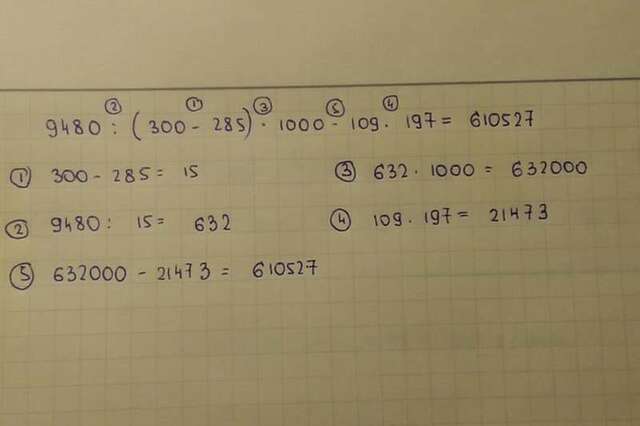 ② ① ③ ⑤ ④
9480 : (300 - 285) · 1000 - 109 · 197 = 610527
① 300 - 285 = 15
③ 632 · 1000 = 632000
② 9480 : 15 = 632
④ 109 · 197 = 21473
⑤ 632000 - 21473 = 610527